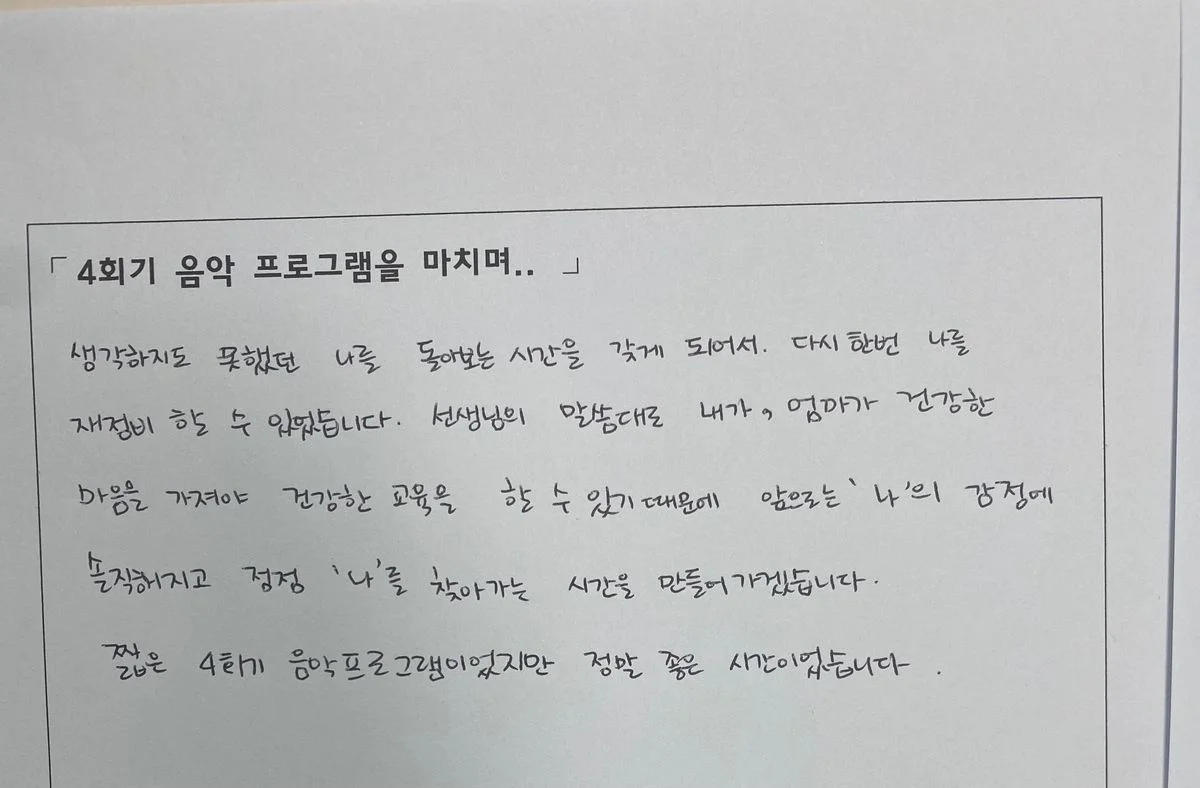 「4회기 음악 프로그램을 마치며.. 」
생각하지도 못했던 나를 돌아보는 시간을 갖게 되어서. 다시 한번 나를
재정비 할 수 있었습니다. 선생님의 말씀대로 내가, 엄마가 건강한
마음을 가져야 건강한 교육을 할 수 있기 때문에 앞으로는 '나'의 감정에
솔직해지고 점점 '나'를 찾아가는 시간을 만들어가겠습니다.
짧은 4회기 음악프로그램이었지만 정말 좋은 시간이었습니다.